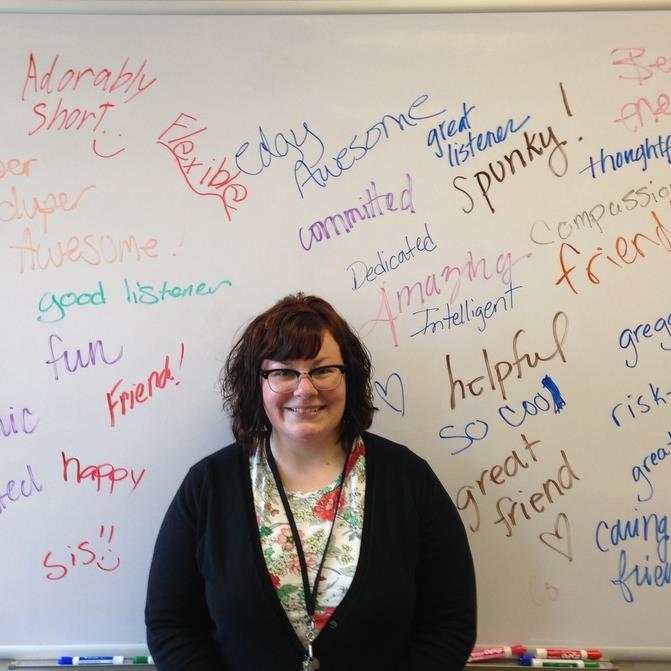 Adorably
Short
Flexible
eday
Awesome
great
listener
spunky!
thoughtf
committed
compassion
duper
Awesome!
Dedicated
friend
Amazing
good listener
Intelligent
greg
fun
helpful
Friend!
risk-
so cool
great
happy
great
friend
caring
friend
sis!!